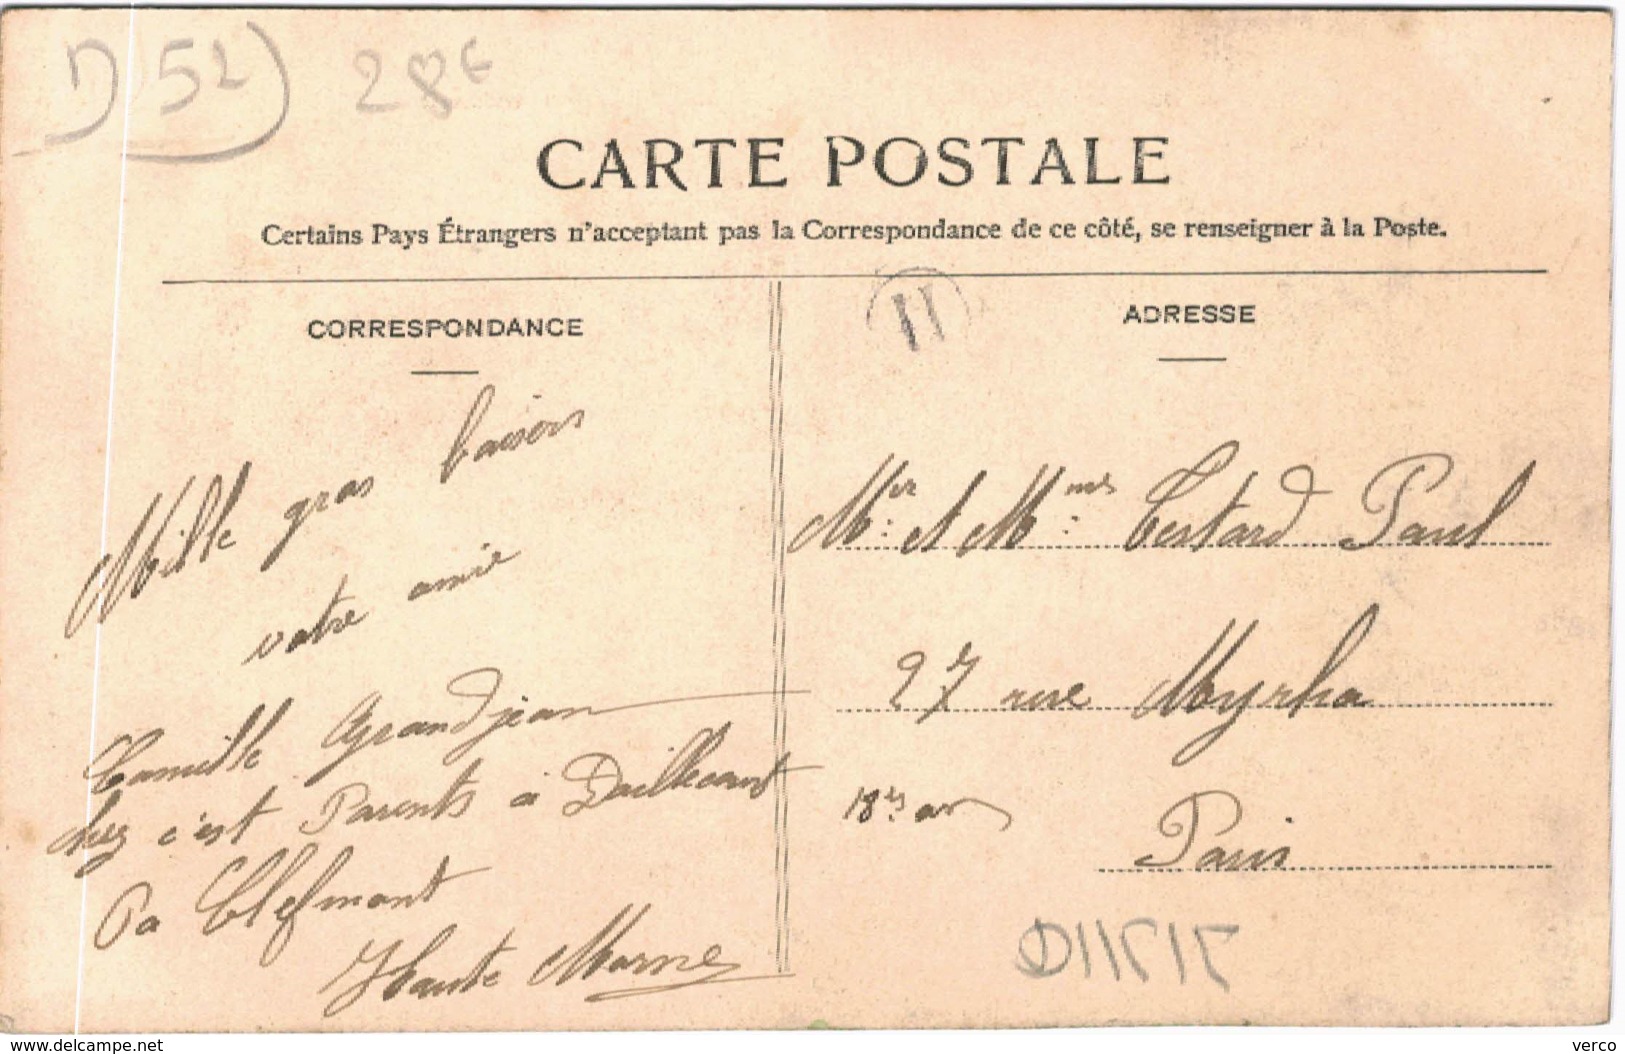 D 52 28€
CARTE POSTALE
Certains Pays Étrangers n'acceptant pas la Correspondance de ce côté, se renseigner à la Poste.
CORRESPONDANCE
Mille gras baisers
votre amie
Camille Grandjean
chez c'est Parents a Daillecourt
Pa Clefmont
Haute Marne
11
ADRESSE
Mr et Mme Testard Paul
27 rue Myrha
18e ar
Paris
www.delcampe.net
verco